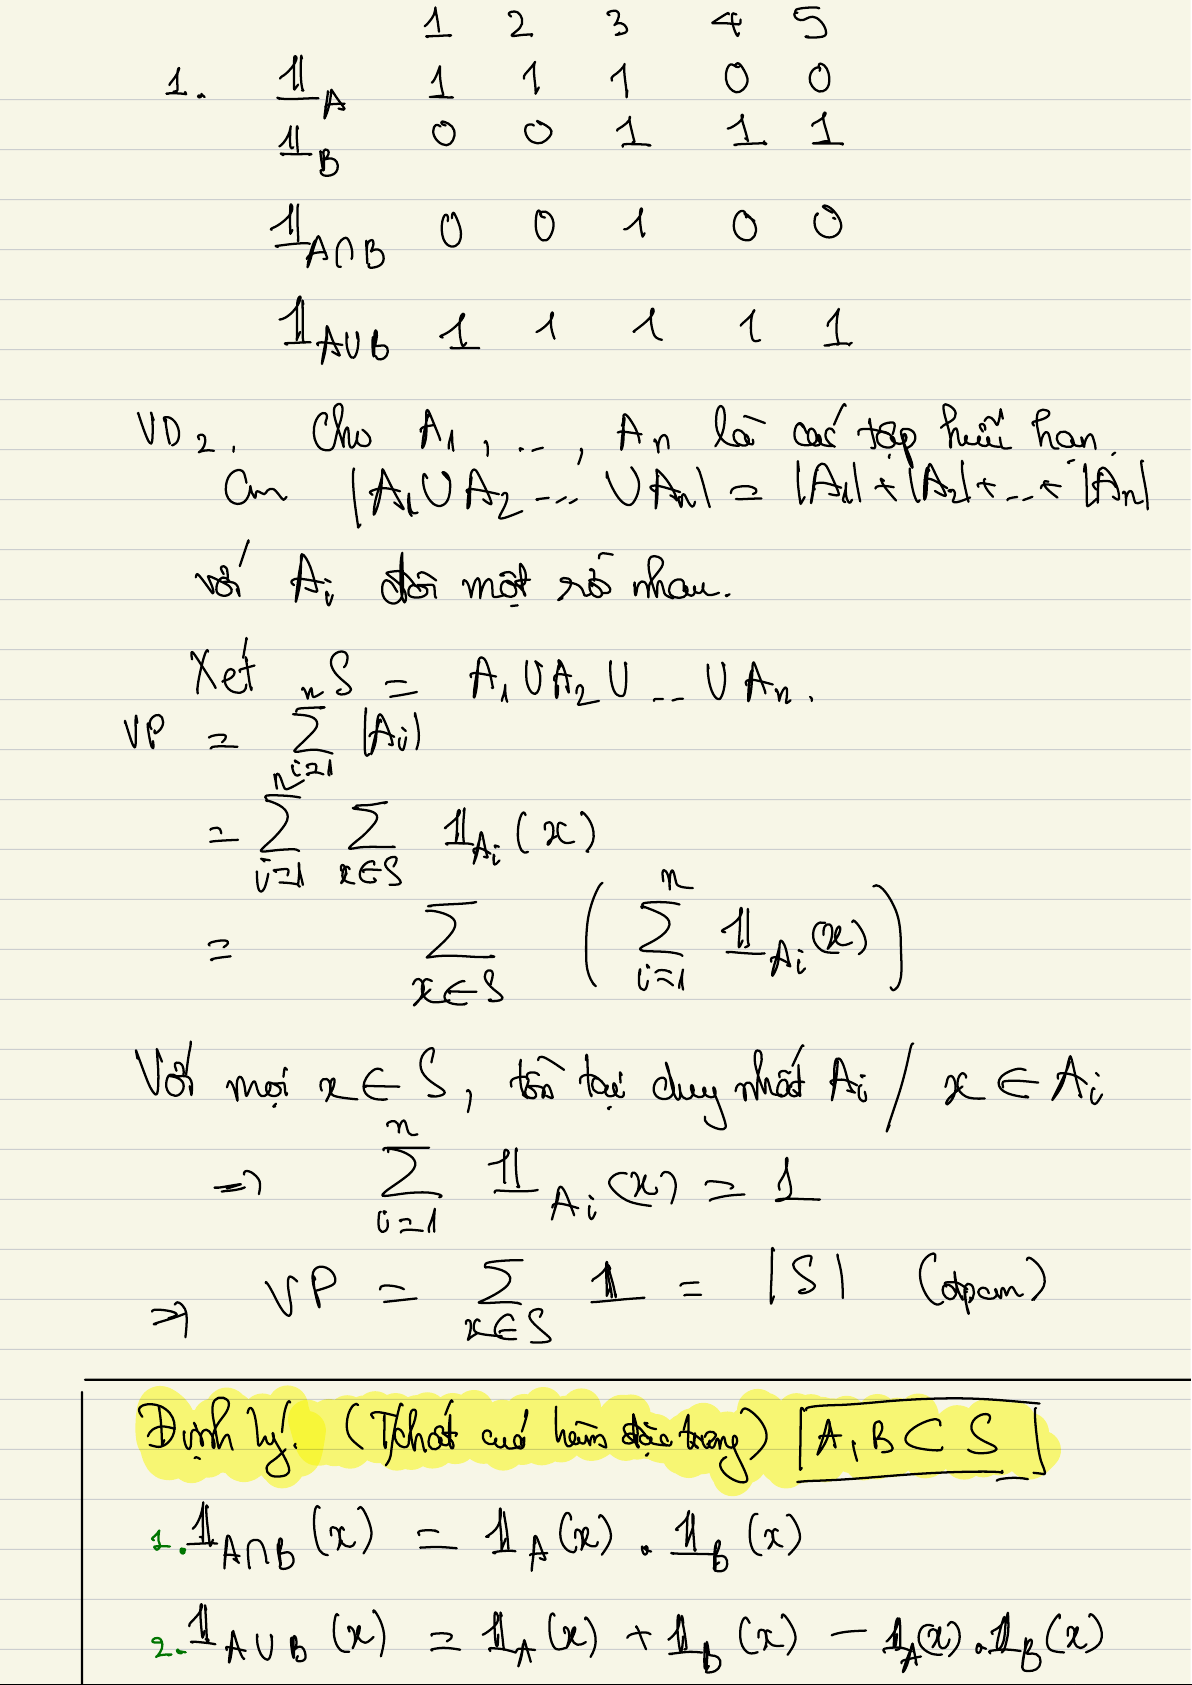 1 2 3 4 5
1. 𝟙_A 1 1 1 0 0
𝟙_B 0 0 1 1 1
𝟙_{A∩B} 0 0 1 0 0
𝟙_{A∪B} 1 1 1 1 1
VD2. Cho A₁, ..., Aₙ là các tập hữu hạn.
Cm |A₁ ∪ A₂ ... ∪ Aₙ| = |A₁| + |A₂| + ... + |Aₙ|
với Aᵢ đôi một rời nhau.
Xét S = A₁ ∪ A₂ ∪ ... ∪ Aₙ.
VP = ∑_{i=1}^{n} |Aᵢ|
= ∑_{i=1}^{n} ∑_{x∈S} 𝟙_{Aᵢ}(x)
= ∑_{x∈S} (∑_{i=1}^{n} 𝟙_{Aᵢ}(x))
Với mọi x ∈ S, tồn tại duy nhất Aᵢ / x ∈ Aᵢ
⇒ ∑_{i=1}^{n} 𝟙_{Aᵢ}(x) = 1
⇒ VP = ∑_{x∈S} 1 = |S| (đpcm)
Định lý. (T/chất của hàm đặc trưng) [A, B ⊂ S]
1. 𝟙_{A∩B}(x) = 𝟙_A(x) . 𝟙_B(x)
2. 𝟙_{A∪B}(x) = 𝟙_A(x) + 𝟙_B(x) − 𝟙_A(x) . 𝟙_B(x)